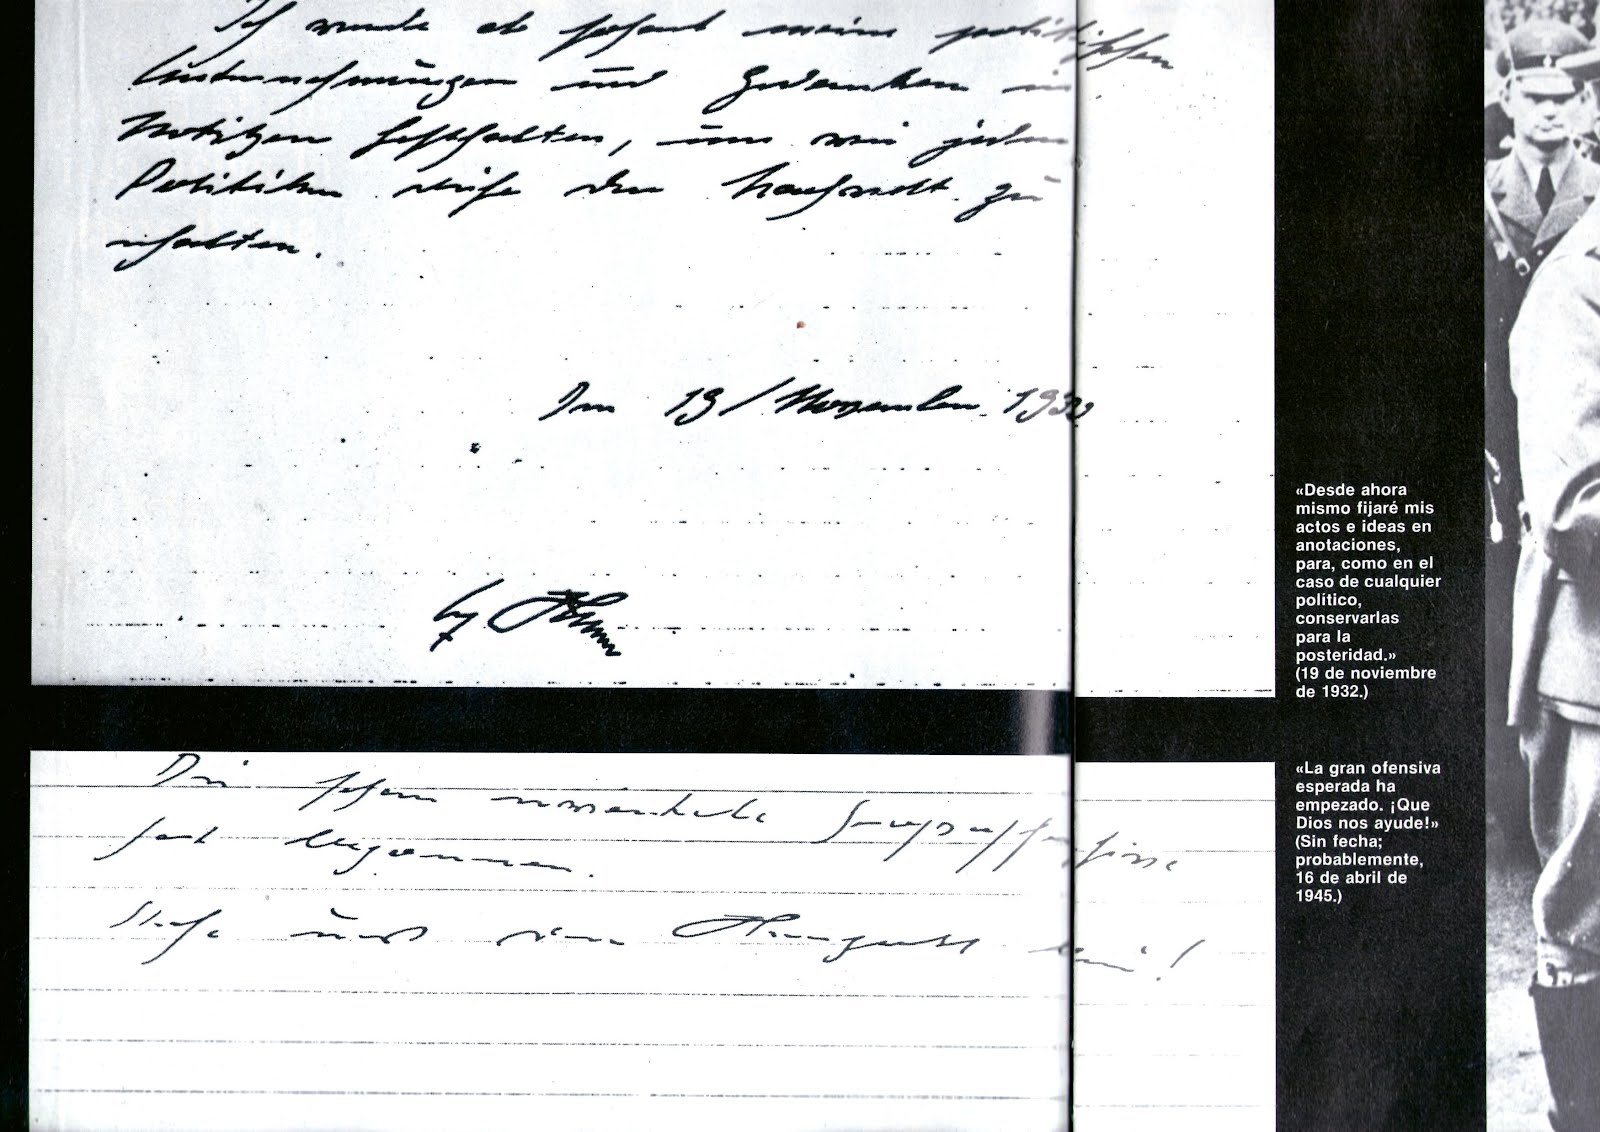 Ich werde ab sofort meine politischen
Unternehmungen und Gedanken in
Notizen festhalten, um wie jeder
Politiker der Nachwelt zu
erhalten.
19/ November 1932
Die schon erwartete Großoffensive
hat begonnen.
Stehe uns der Herrgott bei!
«Desde ahora
mismo fijaré mis
actos e ideas en
anotaciones,
para, como en el
caso de cualquier
político,
conservarlas
para la
posteridad.»
(19 de noviembre
de 1932.)
«La gran ofensiva
esperada ha
empezado. ¡Que
Dios nos ayude!»
(Sin fecha;
probablemente,
16 de abril de
1945.)